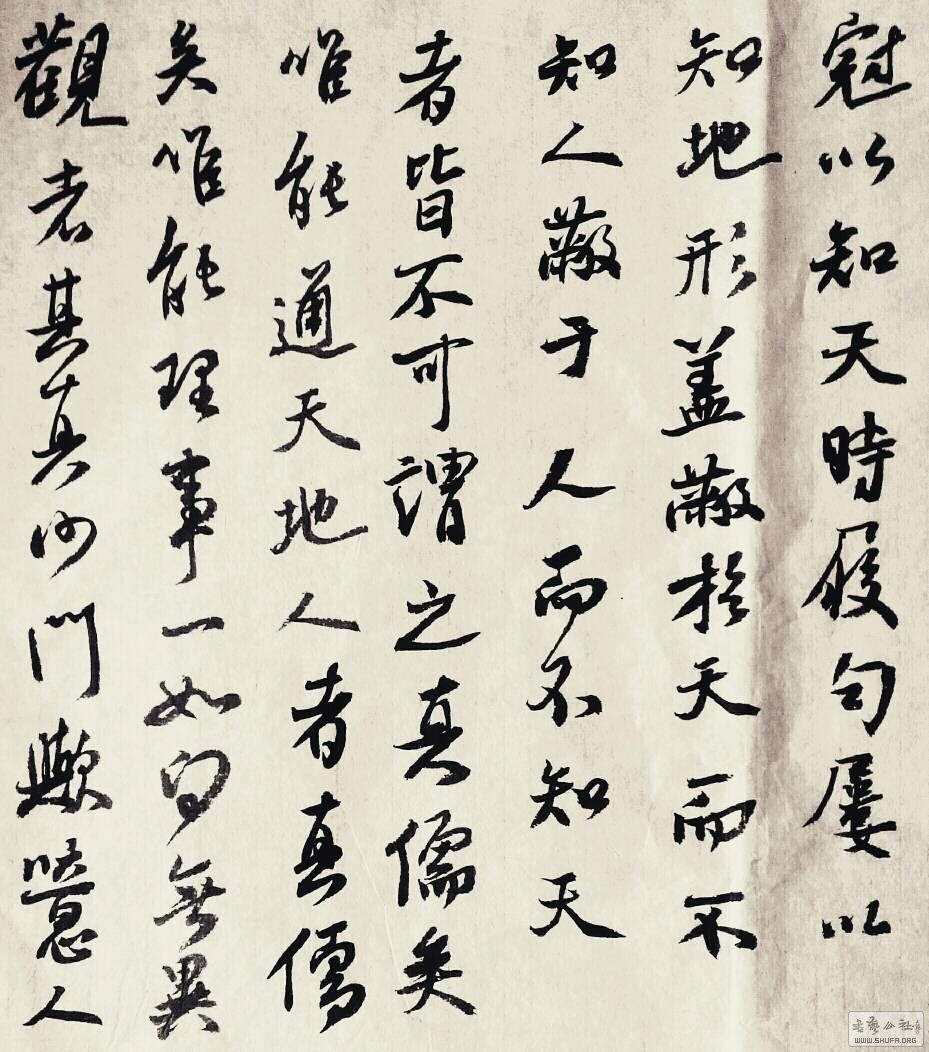 冠以知天時履句屨以
知地形盖蔽於天而不
知人蔽于人而不知天
者皆不可謂之真儒矣
唯能通天地人者真儒
矣唯能理事一如向無異
觀者其真沙門歟噫人
书艺公社
WWW.SHUFA.ORG